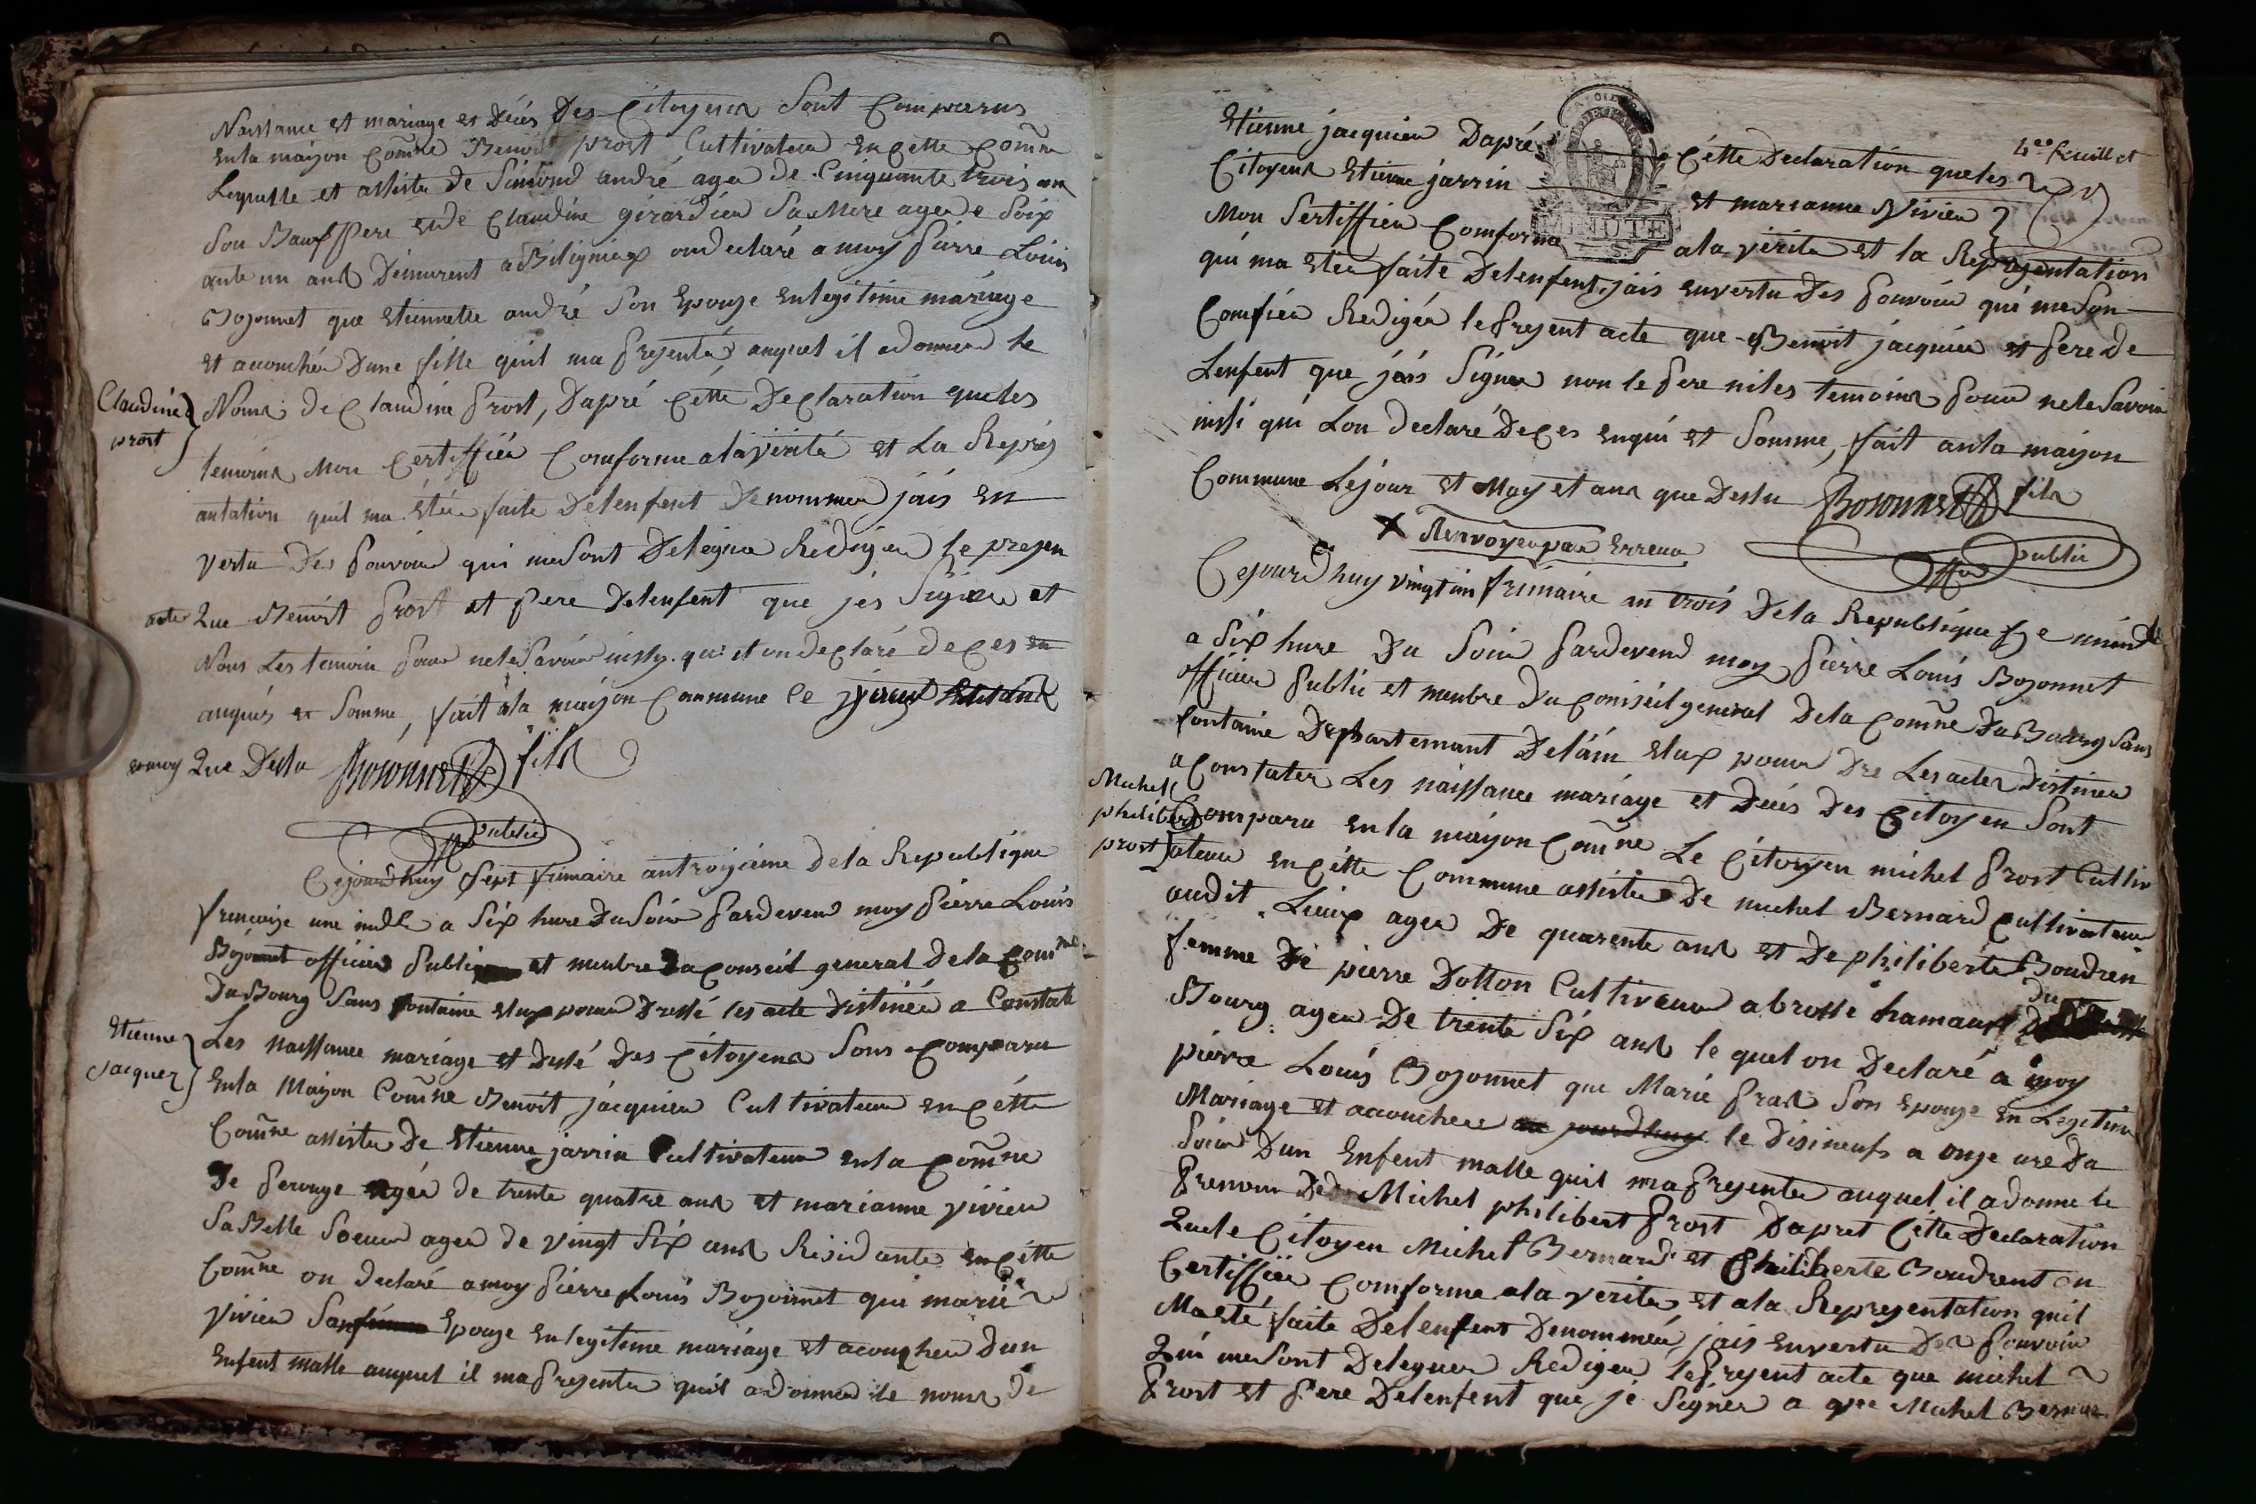 Naissance et mariage et Décès Des Citoyens Sont Comparus
en la maison Comñe Benoit prost Cultivateur en Cette Comñe
Lequelle et assisté de Simond andré agé de Cinquante trois an
Son Baux pere et de Claudine girardieu Sa Mere agée de Soix
ante un ans Demurent a Béligneux on declaré a moy pierre Louis
Bozonnet que Etiennette andré Son Epouze en legitime mariage
et acouchée Dune fille quil ma presenté auquel il a donné le
Claudine prost
Noms de Claudine prost, Dapré Cette Declaration que les
temoins Mon Certiffiée Comforme a la vérité et La Repres
entation quil ma Étée faite De lenfent Denommé jais En
vertu Des pouvoir qui me sont Delegué Redigée le presen
acte Que Benoit prost et pere De lenfent que jes Signé et
Nous Les temoin pour ne le Savoir inssy qui et on declaré de Ces en
anquis et Somme, fait a la maison Commune le jour
et moy Que Desu Bozonnet fils
off publie
Cejourdhuy Sept frimaire an troizieme de la Republique
francoize une indle a Six hure Du Soir pardevend moy pierre Louis
Bozonnet officier Public et menbre Du Conseil general de la Comñe
Du Bourg Sans fontaine Elux pour Dressé les acte Distinée a Constaté
Etienne Jacquer
Les Naissance mariage et Dessé Des Citoyens Sons Comparu
En la Maizon Comñe Benoit jacquier Cultivateur en Cette
Comñe assisté De Etienne jarrin Cultivateur en la Comñe
De perouge agée de trente quatre ans et marianne vivier
Sa Belle Soeur agée de vingt Six ans Residante en Cette
Comñe on declaré a moy pierre Louis Bozonnet que marie
vivier Sa Epouze en legitime mariage et acouchée Dun
Enfent malle auquel il ma presenté quil a donné le noms de
4e feuillet
Etienne jacquier Dapré Cette Declaration que les
Citoyens Etienne jarrin et marianne Vivier
MINUTE
Mon Sertiffiée Comforme a la vérité et la Représentation
qui ma Etée faite De lenfent, jais en vertu Des pouvoir qui me Son
Comfiée Redigée le present acte que Benoit jacquier et pere de
Lenfent que jais Signé non le pere ni les temoins pour ne le Savoir
inssi qui Lon declaré De Ces enqui et Somme, fait an la maison
Commune Lejour et Moy et ans que Desu Bozonnet fils
off publie
X Renvoyé par Erreur
Cejourdhuy vingt un frimaire an trois De la Republique
a Six hure Du Soir pardevend moy pierre Louis Bozonnet
officier public et menbre Du Conseil general De la Comñe Du Bourg Sans
fontaine Departemant De lain Elux pour Dre Les actes Distinée
a Constater Les naissance mariage et Décès Des Citoyen Sont
Michel philibert prost
Comparu en la maison Comñe Le Citoyen michel prost Cultiv
ateur en Cette Commune assisté De michel Bernard Cultivateur
audit Lieux agée De quarente ans et De philiberte Boudren
femme De pierre Dotton Cultiveur a brosse hamaux du
Bourg agée De trente Six ans le quel on Declaré a moy
pierre Louis Bozonnet que Marie pras Son Epouze en Legetime
Mariage et acouchée au jourdhuy le Disineufs a onze ure Du
Soir Dun Enfent malle quil ma presenté auquel il a donné le
prenom De Michel philibert prost Dapret Cette Declaration
Que le Citoyen Michel Bernard et philiberte Boudrent on
Certiffiée Comforme a la verité et a la Representation quil
Ma Eté faite De lenfent Denommée, jais en vertu Des pouvoir
Qui me Sont Delegué Redigée le present acte que michel
prost et pere De lenfent que je Signés a que Michel Bernar